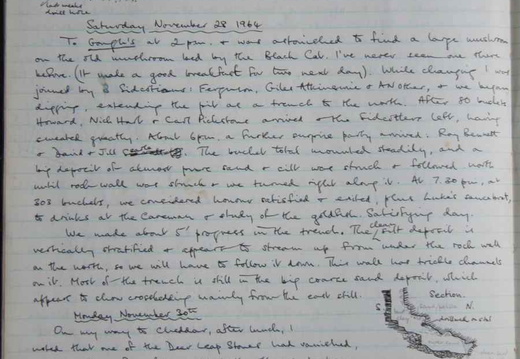 last week's
Saturday November 28 1964
To Gough's at 2 pm. & was astonished to find a large mushroom
on the old mushroom bed by the Black Cat. I've never seen one there
before. (It made a good breakfast for two next day). While changing I was
joined by 3 Sidcotians: Ferguson, Giles & another, & we began
digging, extending the pit as a trench to the north. After 80 buckets
Howard, Nick Hart & Carl Pickstone arrived & the Sidcotians left, having
sweated greatly. About 6pm. a further surprise party arrived. Ray Bennett
& David & Jill. The bucket total mounted steadily, and a
big deposit of almost pure sand & silt was struck & followed north
until rock wall was struck & we turned right along it. At 7.30 pm, at
303 buckets, we considered honour satisfied & exited, plus Luke's
to drinks at the Caveman & study of the goldfish. Satisfying day.
We made about 5' progress in the trench. The clean silt deposit is
vertically stratified & appears to stream up from under the rock wall
on the north, so we will have to follow it down. This wall has trickle channels
on it. Most of the trench is still in the big coarse sand deposit, which
appears to show crossbedding mainly from the east still.
S. Section. N.
Monday November 30th
On my way to Cheddar, after lunch, I
noted that one of the Deer Leap Stones had vanished,